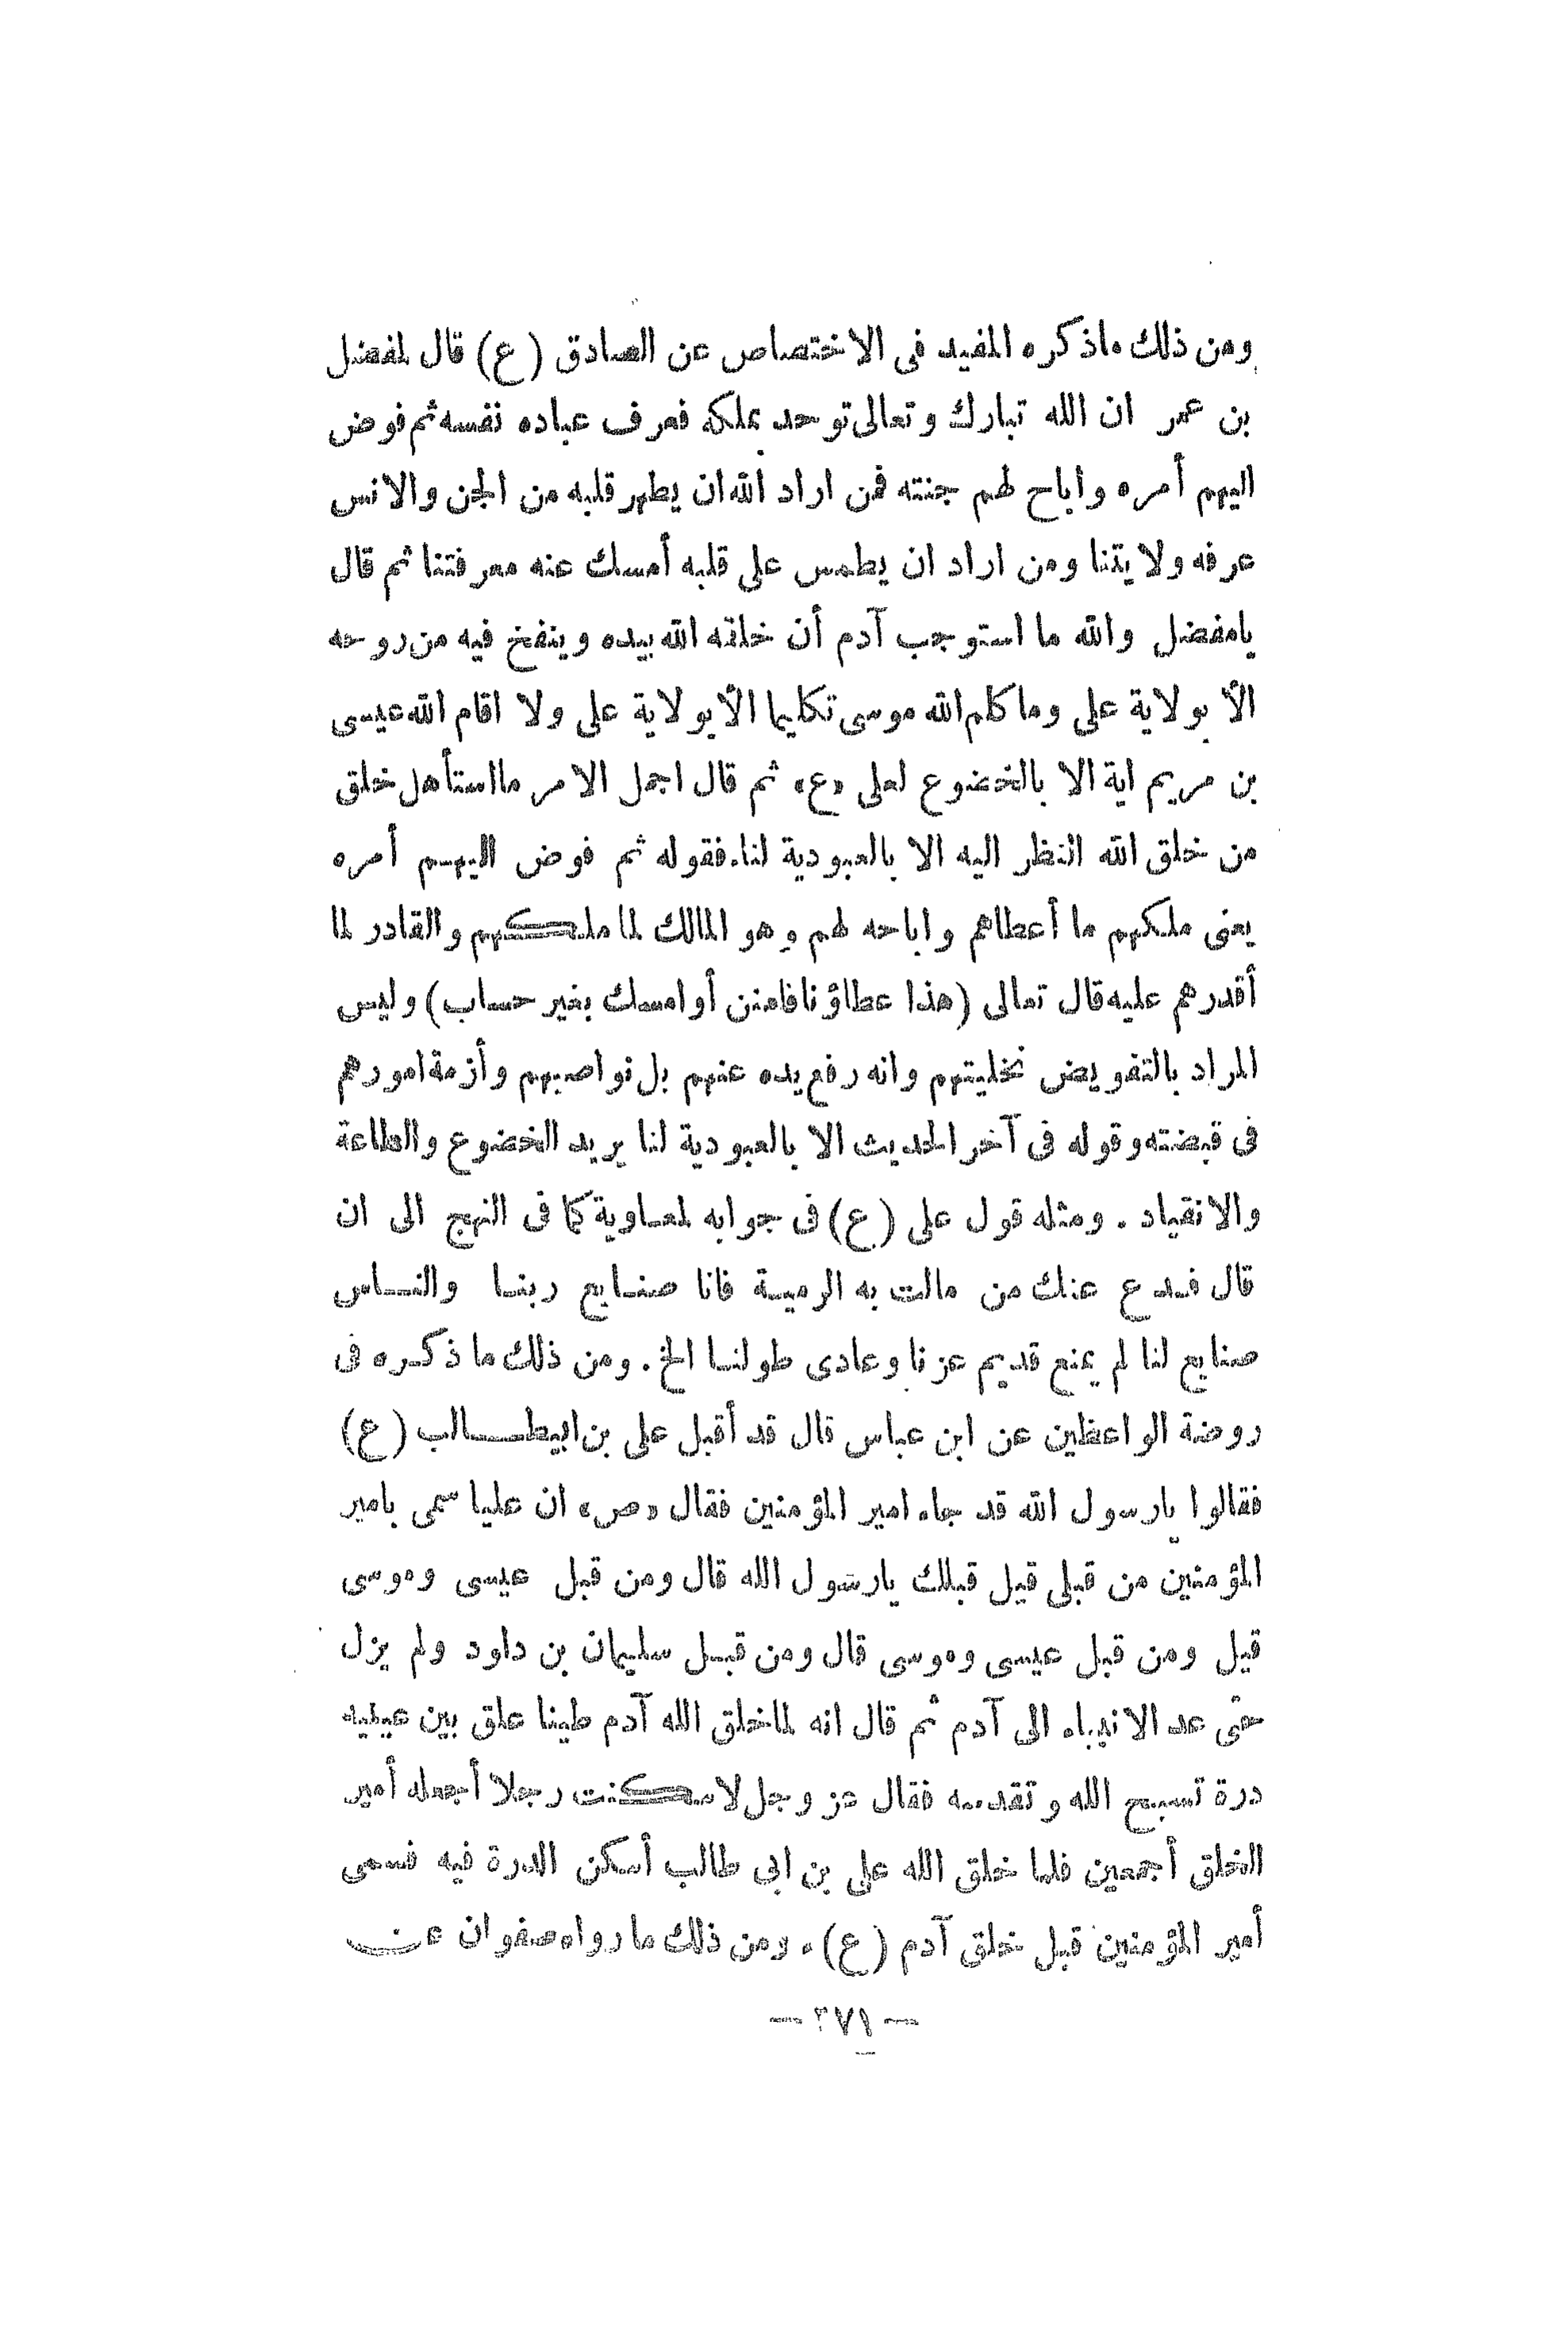 ومن ذلك ماذكره المفيد فى الاختصاص عن الصادق (ع) قال لمفضل
بن عمر ان الله تبارك وتعالى توحد بملكه فعرف عباده نفسه ثم فوض
اليهم أمره واباح لهم جنته فمن اراد الله ان يطهر قلبه من الجن والانس
عرفه ولايتنا ومن اراد ان يطمس على قلبه أمسك عنه معرفتنا ثم قال
يامفضل والله ما استوجب آدم أن خلقه الله بيده وينفخ فيه من روحه
الا بولاية على وما كلم الله موسى تكليما الا بولاية على ولا اقام الله عيسى
بن مريم اية الا بالخضوع لعلى «ع» ثم قال اجمل الامر مااستأهل خلق
من خلق الله النظر اليه الا بالعبودية لنا. فقوله ثم فوض اليهم أمره
يعنى ملكهم ما أعطاهم واباحه لهم وهو المالك لما ملكهم والقادر لما
أقدرهم عليه قال تعالى (هذا عطاؤنا فامنن أو امسك بغير حساب) وليس
المراد بالتفويض تخليتهم وانه رفع يده عنهم بل نواصيهم وأزمة امورهم
فى قبضته وقوله فى آخر الحديث الا بالعبودية لنا يريد الخضوع والطاعة
والانقياد . ومثله قول على (ع) فى جوابه لمعاوية كما فى النهج الى ان
قال فدع عنك من مالت به الرمية فانا صنايع ربنا والناس
صنايع لنا لم يمنع قديم عزنا وعادى طولنا الخ . ومن ذلك ما ذكره فى
روضة الواعظين عن ابن عباس قال قد أقبل على بن ابيطالب (ع)
فقالوا يارسول الله قد جاء امير المؤمنين فقال «ص» ان عليا سمى بامير
المؤمنين من قبلى قيل قبلك يارسول الله قال ومن قبل عيسى وموسى
قيل ومن قبل عيسى وموسى قال ومن قبل سليمان بن داود ولم يزل
حتى عد الانبياء الى آدم ثم قال انه لما خلق الله آدم طينا علق بين عينيه
درة تسبح الله وتقدسه فقال عز وجل لاسكنت رجلا أجعله أمير
الخلق أجمعين فلما خلق الله على بن ابى طالب أسكن الدرة فيه فسمى
أمير المؤمنين قبل خلق آدم (ع) . ومن ذلك ما رواه صفوان عن
— ٢٧١ —